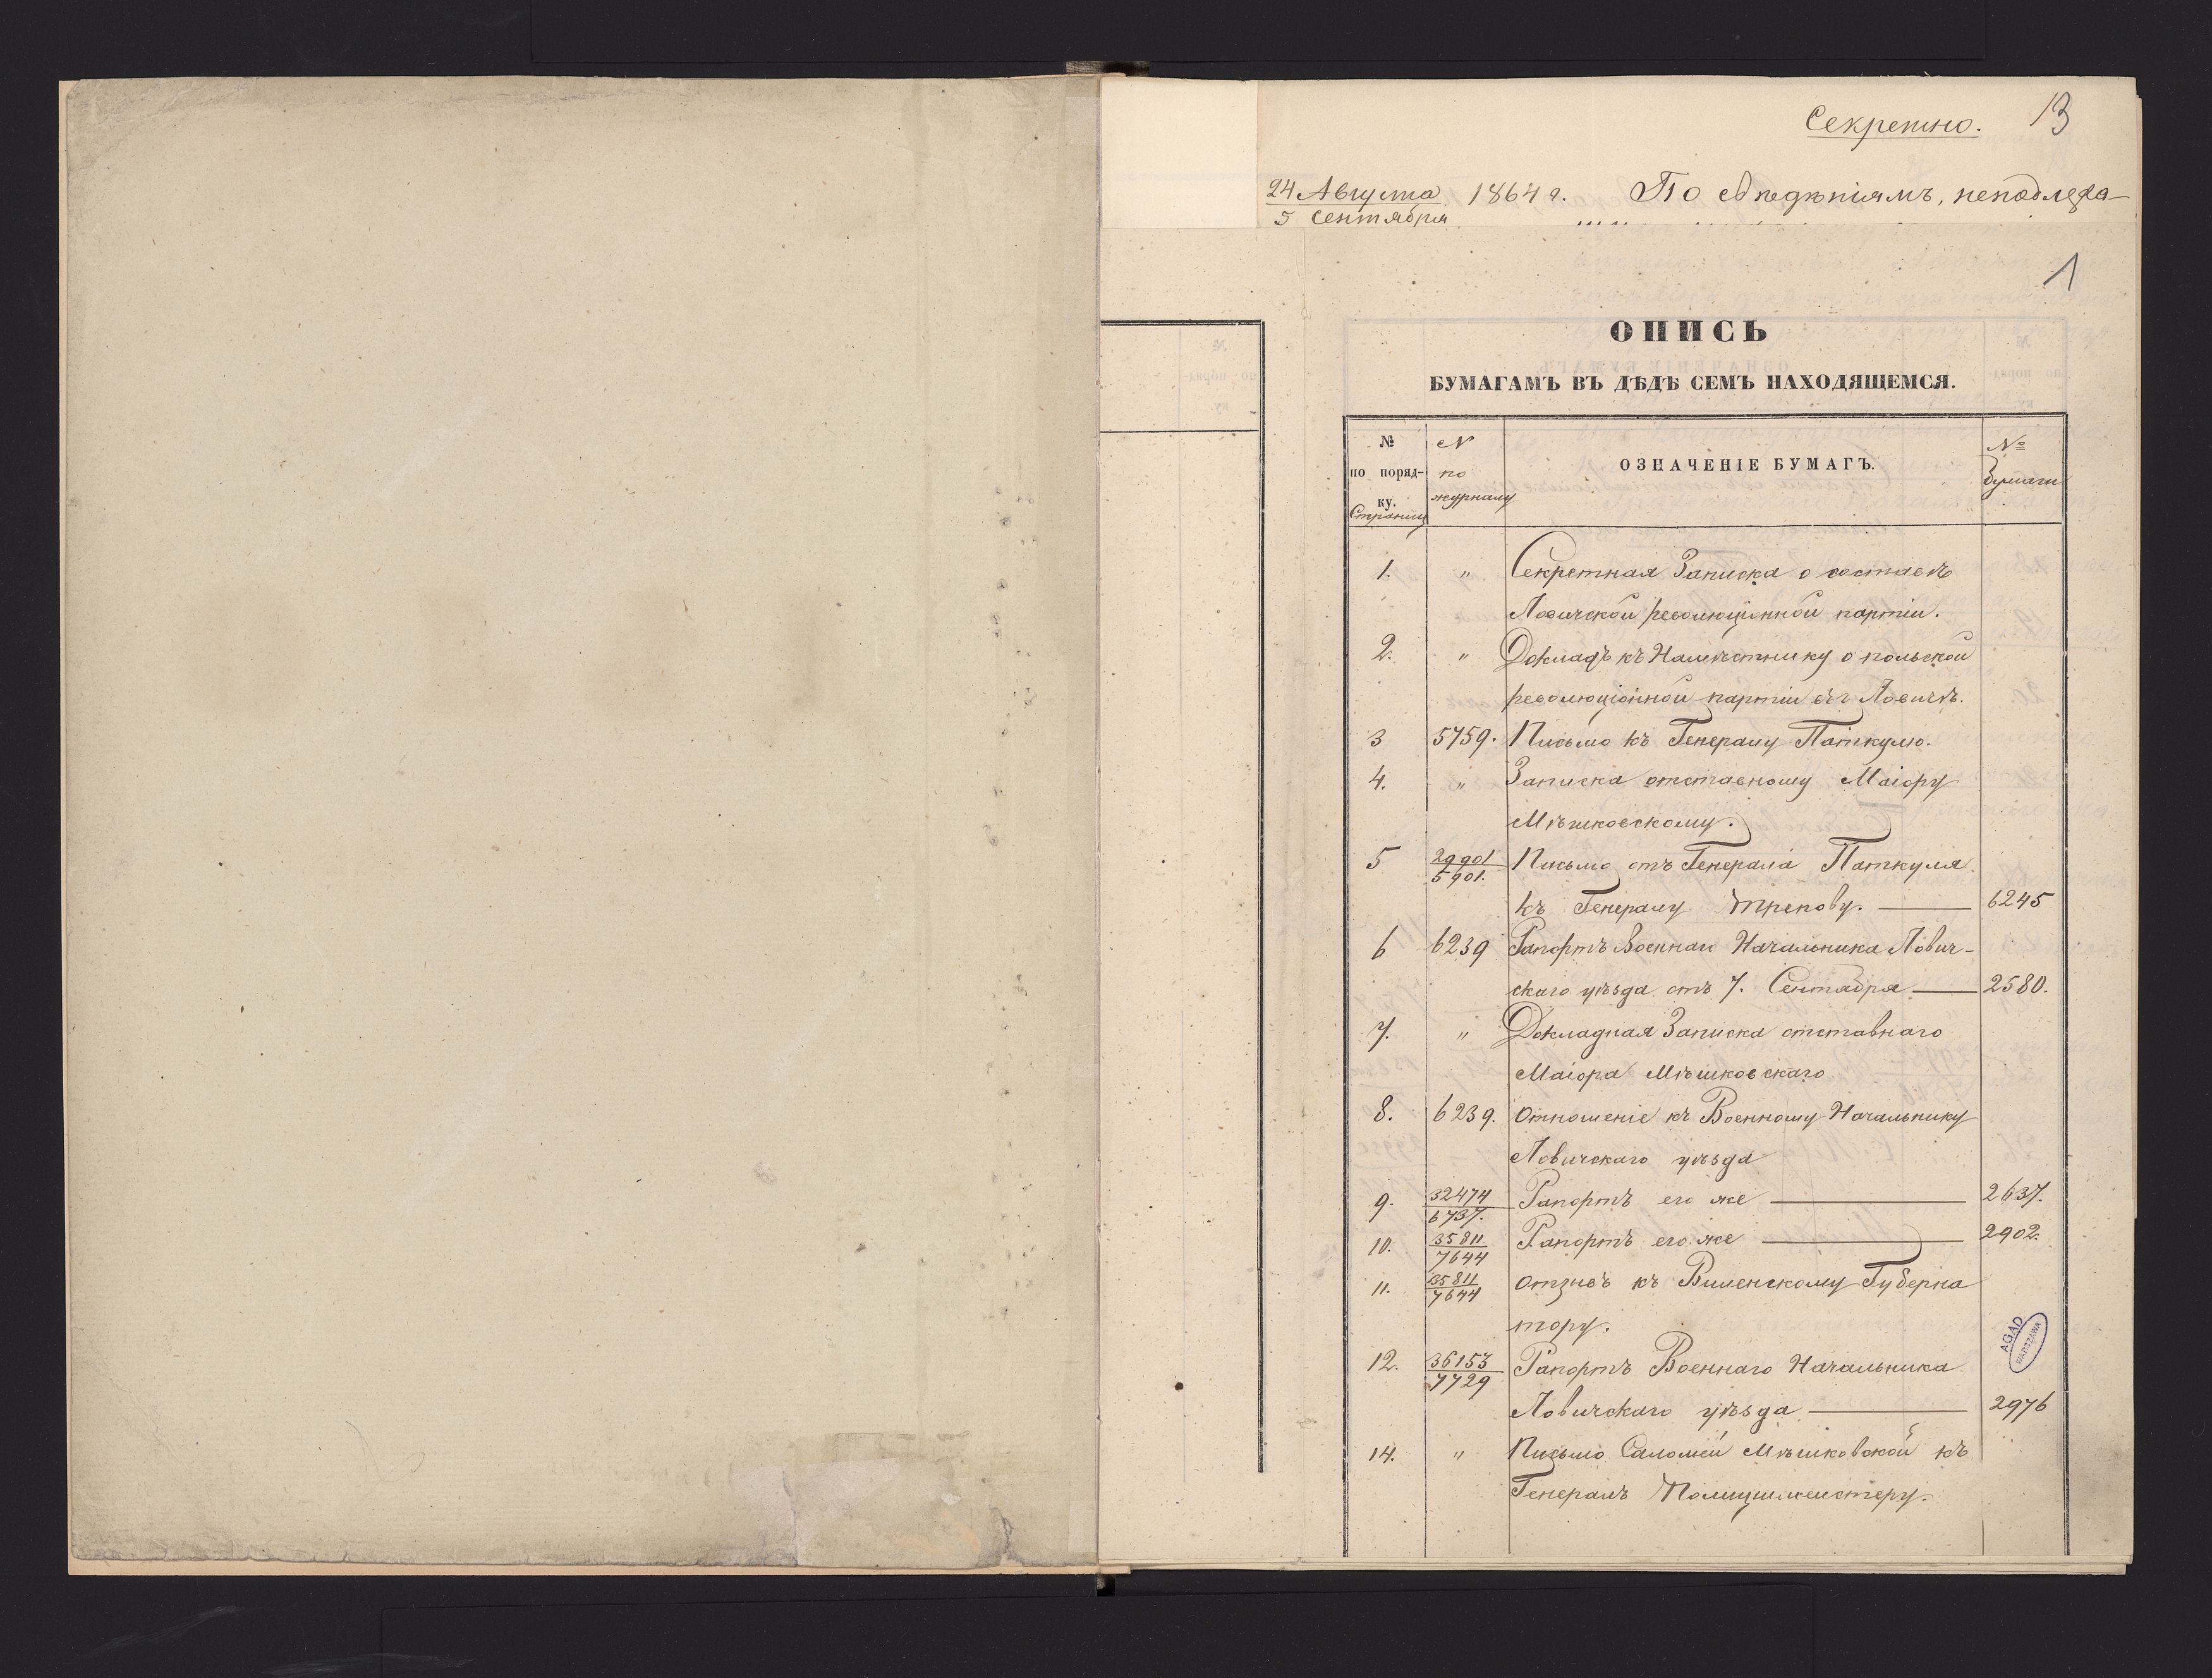 Секретно. 13
24 Августа 1864 г. По свѣдѣніямъ, неподлежа-
5 Сентября
1
ОПИСЬ
БУМАГАМЪ ВЪ ДѢДѢ СЕМЪ НАХОДЯЩЕМСЯ.
№ по порядку. Страниц
N по журналу
ОЗНАЧЕНІЕ БУМАГЪ.
№ бумаги
1. " Секретная Записка о составѣ
Ловичской революціонной партіи.
2. " Докладъ къ Намѣстнику о польской
революціонной партіи въ Ловичѣ.
3 5759. Письмо къ Генералу Паткулю.
4. " Записка отставному Маіору
Мѣшковскому.
5 29901/5901. Письмо отъ Генерала Паткуля
къ Генералу Трепову. — 6245
6 6239 Рапортъ Военнаго Начальника Лович-
скаго уѣзда отъ 7. Сентября — 2580.
7. " Докладная Записка отставнаго
Маіора Мѣшковскаго
8. 6239. Отношеніе къ Военному Начальнику
Ловичскаго уѣзда
9. 32474/6737. Рапортъ его же — 2637.
10. 35811/7644 Рапортъ его же — 2902.
11. 35811/7644 Отзывъ къ Виленскому Губерна
тору.
12. 36153/7729 Рапортъ Военнаго Начальника
Ловичскаго уѣзда — 2976
14. " Письмо Саломеи Мѣшковской къ
Генералъ Полицмейстеру.
AGAD
WARSZAWA